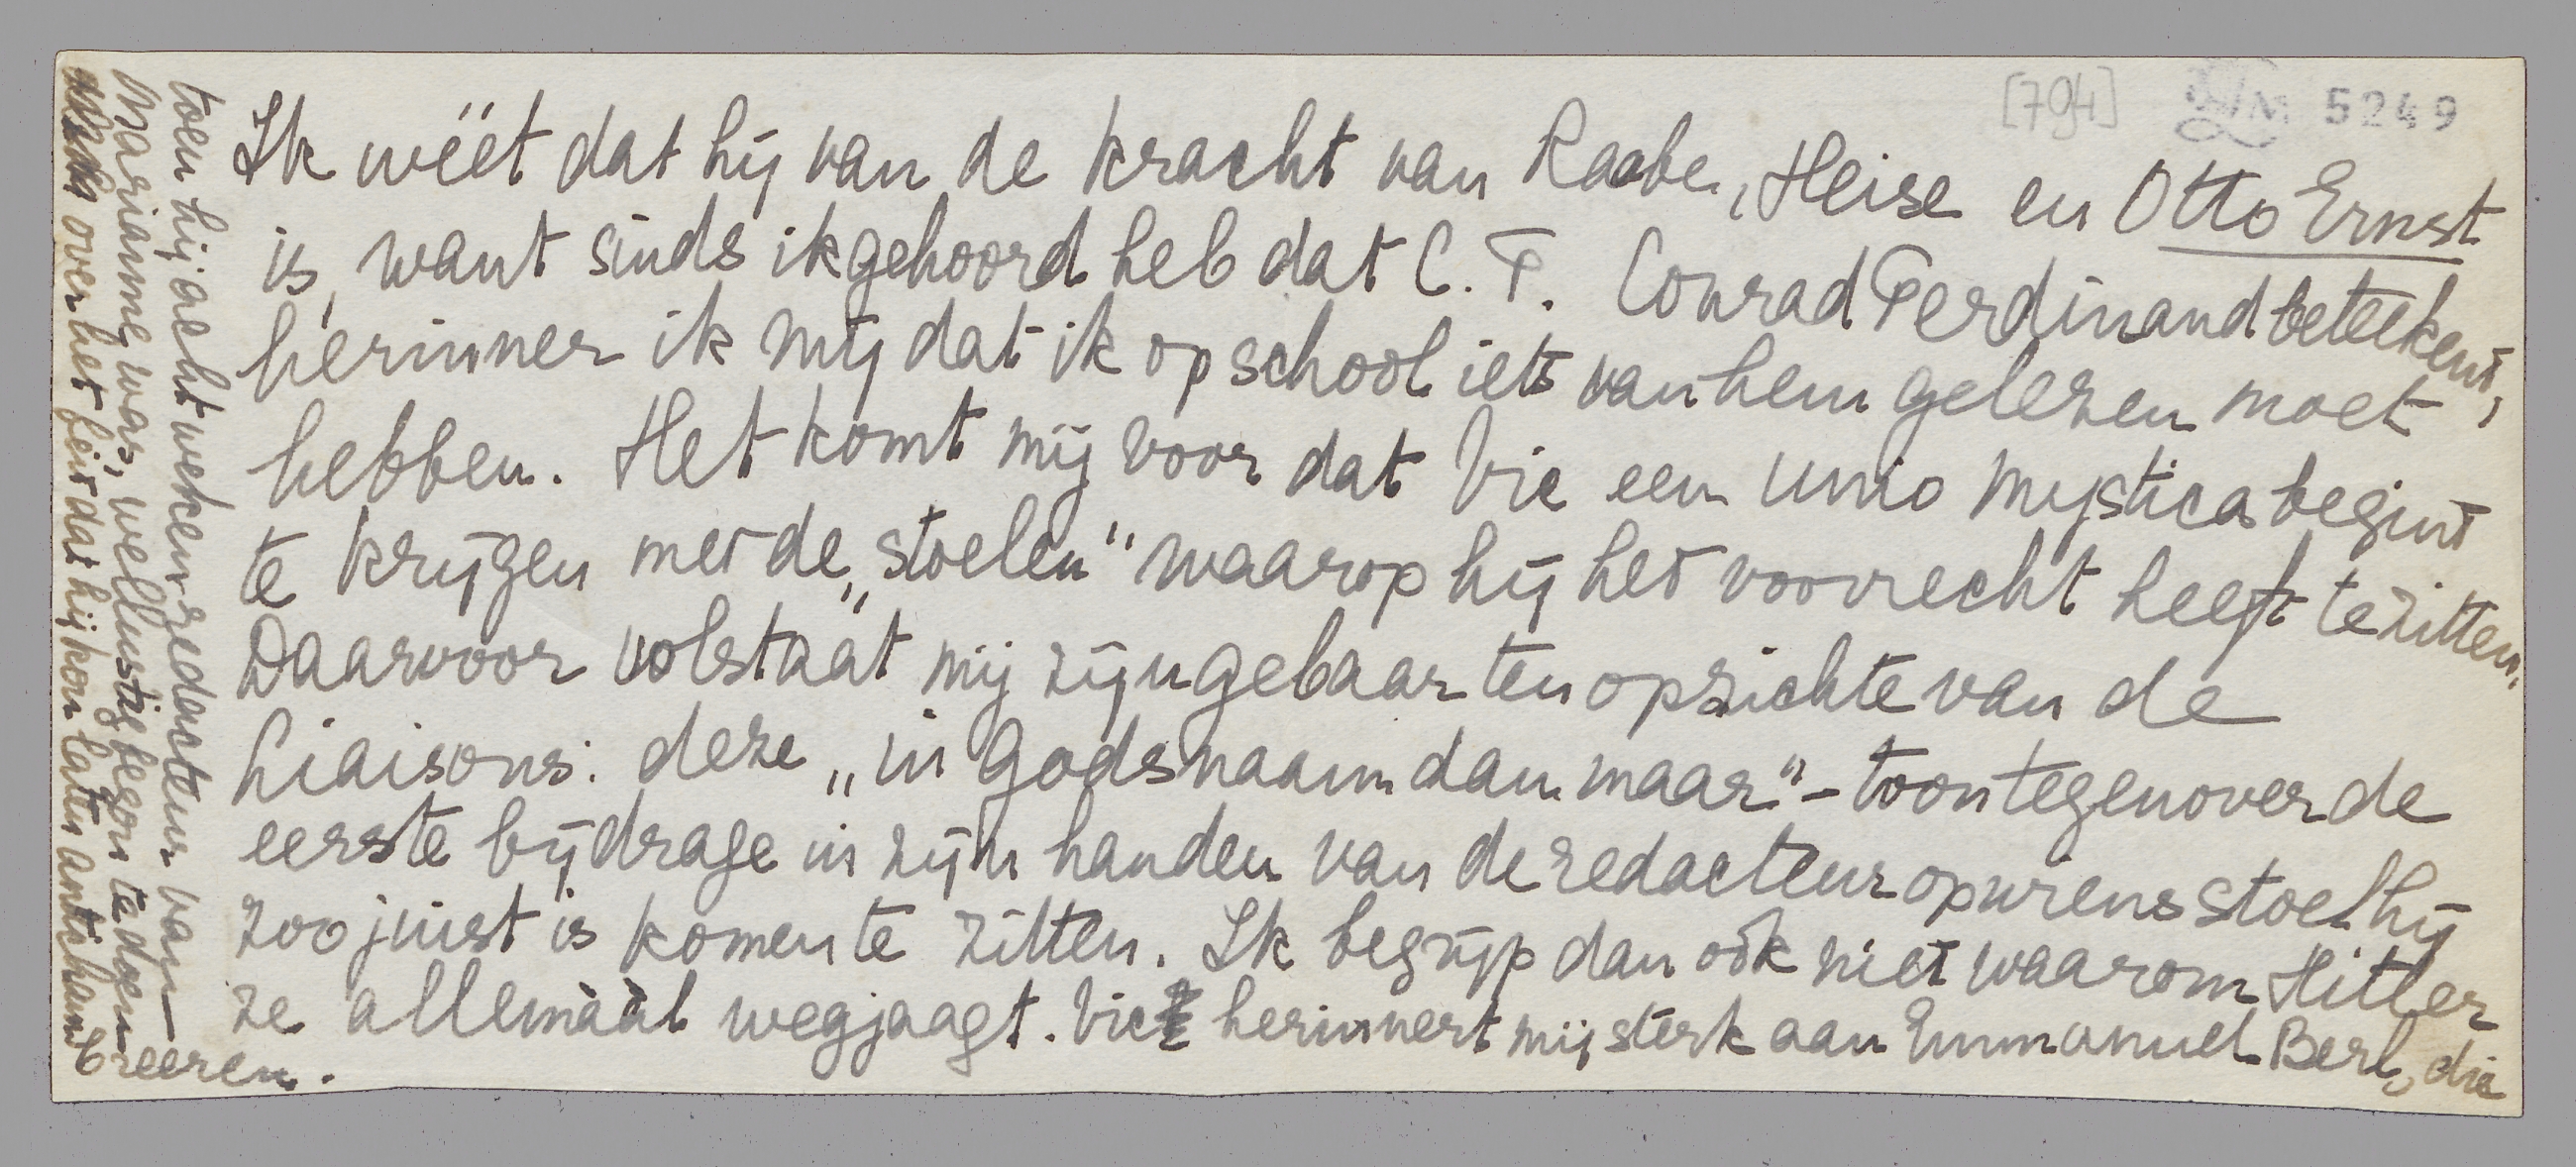 [794] LM 5249
Ik wéét dat hij van de kracht van Raabe, Heise en Otto Ernst
is, want sinds ik gehoord heb dat C. F. Conrad Ferdinand beteekent,
herinner ik mij dat ik op school iets van hem gelezen moet
hebben. Het komt mij voor dat Vic een unio mystica begint
te krijgen met de „stoelen” waarop hij het voorrecht heeft te zitten.
Daarvoor volstaat mij zijn gebaar ten opzichte van de
Liaisons: deze „in godsnaam dan maar”-toon tegenover de
eerste bijdrage in zijn handen van de redacteur op wiens stoel hij
zoo juist is komen te zitten. Ik begrijp dan ook niet waarom Hitler
ze allemáál wegjaagt. Vic herinnert mij sterk aan Emmanuel Berl, die
toen hij acht weken redacteur van
Marianne was, wellustig begon te doen
over het feit dat hij kon laten antichambreeren.